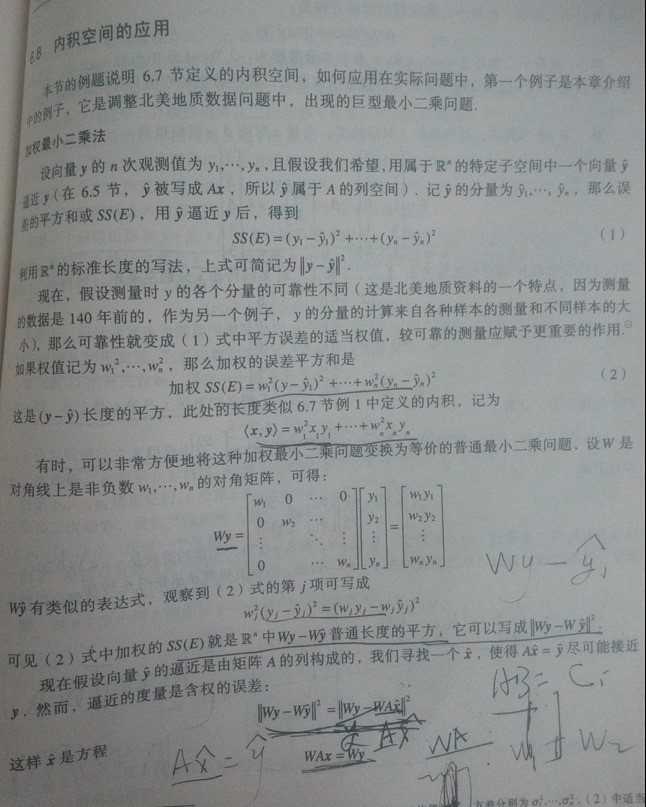 6.8 内积空间的应用
本节的例题说明 6.7 节定义的内积空间，如何应用在实际问题中，第一个例子是本章介绍
中的例子，它是调整北美地质数据问题中，出现的巨型最小二乘问题.
加权最小二乘法
设向量 y 的 n 次观测值为 y₁,⋯,yₙ, 且假设我们希望, 用属于 ℝⁿ 的特定子空间中一个向量 ŷ
逼近 y (在 6.5 节， ŷ 被写成 Ax ，所以 ŷ 属于 A 的列空间). 记 ŷ 的分量为 ŷ₁,⋯, ŷₙ ，那么误
差的平方和或 SS(E) ，用 ŷ 逼近 y 后，得到
SS(E) = (y₁ − ŷ₁)² +⋯+ (yₙ − ŷₙ)² （1）
利用 ℝⁿ 的标准长度的写法，上式可简记为 ‖y − ŷ‖².
现在，假设测量时 y 的各个分量的可靠性不同（这是北美地质资料的一个特点，因为测量
的数据是 140 年前的，作为另一个例子， y 的分量的计算来自各种样本的测量和不同样本的大
小). 那么可靠性就变成（1）式中平方误差的适当权值，较可靠的测量应赋予更重要的作用.㊀
如果权值记为 w₁²,⋯,wₙ² ，那么加权的误差平方和是
加权 SS(E) = w₁²(y − ŷ₁)² +⋯+ wₙ²(yₙ − ŷₙ)² （2）
这是 (y − ŷ) 长度的平方，此处的长度类似 6.7 节例 1 中定义的内积，记为
⟨x, y⟩ = w₁²x₁y₁ +⋯+ wₙ²xₙyₙ
有时，可以非常方便地将这种加权最小二乘问题变换为等价的普通最小二乘问题，设 W 是
对角线上是非负数 w₁,⋯,wₙ 的对角矩阵，可得：
w₁ 0 ⋯ 0 y₁ w₁y₁
0 w₂ ⋯ y₂ w₂y₂
Wy = ⋮ ⋱ ⋮ ⋮ = ⋮
0 ⋯ wₙ yₙ wₙyₙ
Wy − ŷ
Wŷ 有类似的表达式，观察到（2）式的第 j 项可写成
wⱼ²(yⱼ − ŷⱼ)² = (wⱼyⱼ − wⱼŷⱼ)²
可见（2）式中加权的 SS(E) 就是 ℝⁿ 中 Wy − Wŷ 普通长度的平方，它可以写成 ‖Wy − Wŷ‖².
现在假设向量 ŷ 的逼近是由矩阵 A 的列构成的，我们寻找一个 x̂ ，使得 Ax̂ = ŷ 尽可能接近
y ，然而，逼近的度量是含权的误差：
‖Wy − Wŷ‖² = ‖Wy − WAx̂‖²
AB = C
这样 x̂ 是方程
WAx = Wy
Ax̂ = ŷ
WA
W₂
方差分别为 σ₁²,⋯,σₙ²，（2）中适当